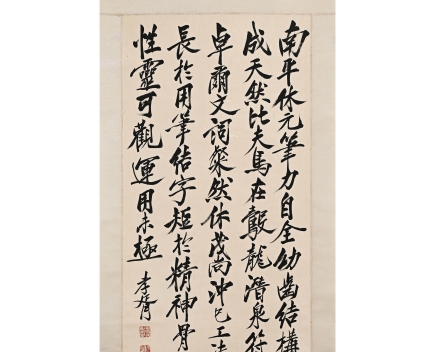 南平休元筆力自全幼齒結構
成天然比夫馬在龍潛泉符
卓爾文詞粲然休茂尚沖已工法
長於用筆結字短於精神骨
性靈可觀運用未極
李